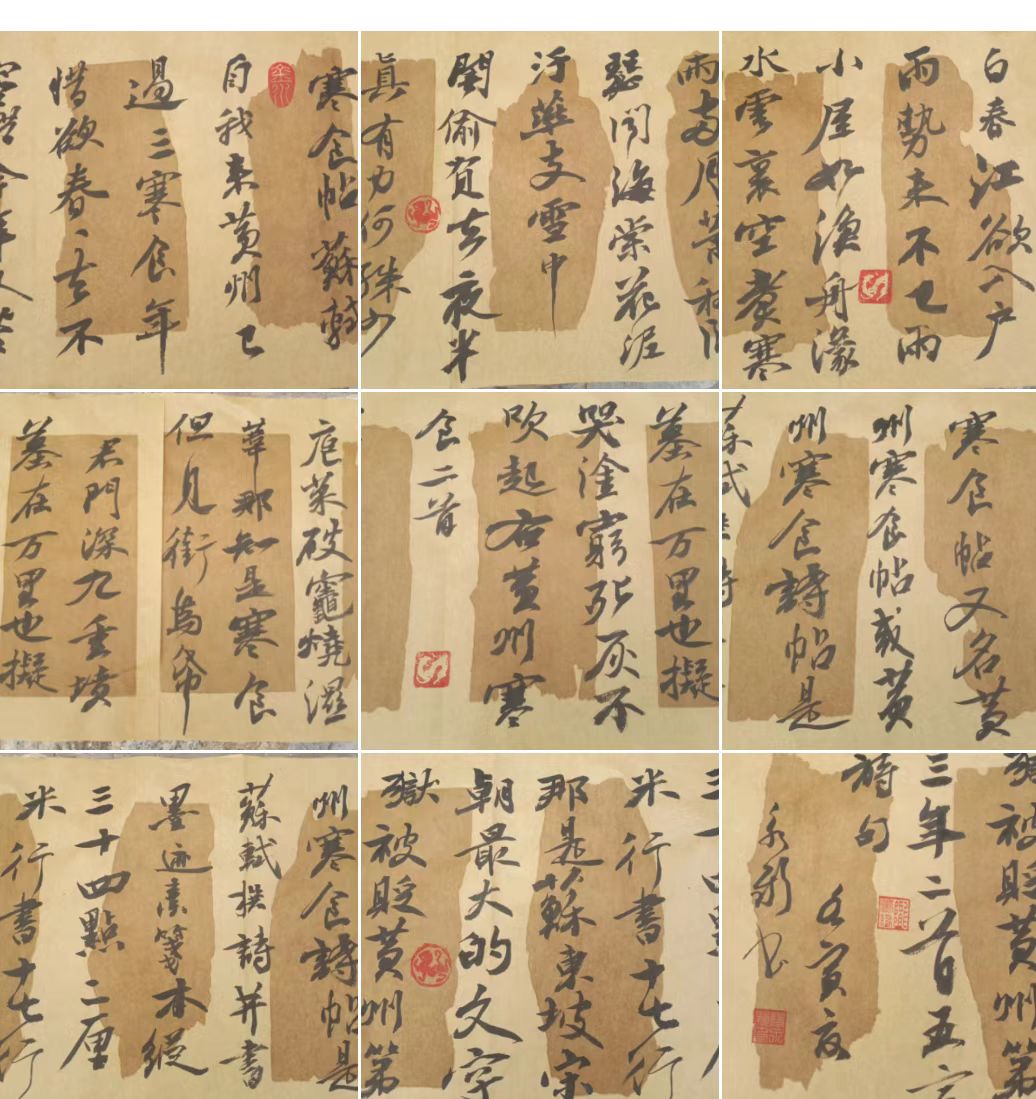 寒食帖蘇軾
自我来黄州已
過三寒食年
惜欲春〻去不
瑟聞海棠花泥
汙燕支雪中
闇偷負去夜半
真有力何殊少
白春江欲入户
雨勢来不已雨
小屋如漁舟濛
水雲裏空煮寒
庖菜破竈燒濕
葦那知是寒食
但見銜烏帋
君門深九重墳
墓在万里也擬
墓在万里也擬
哭塗窮死灰不
吹起右黄州寒
食二首
寒食帖又名黄
州寒食帖或黄
州寒食詩帖是
州寒食詩帖是
蘇軾撰詩并書
墨迹素箋本縱
三十四點二厘
米行書十七行
米行書十七行
那是蘇東坡宋
朝最大的文字
獄被貶黄州第
被貶黄州第
三年二首五言
詩句 壬寅夏
永新书